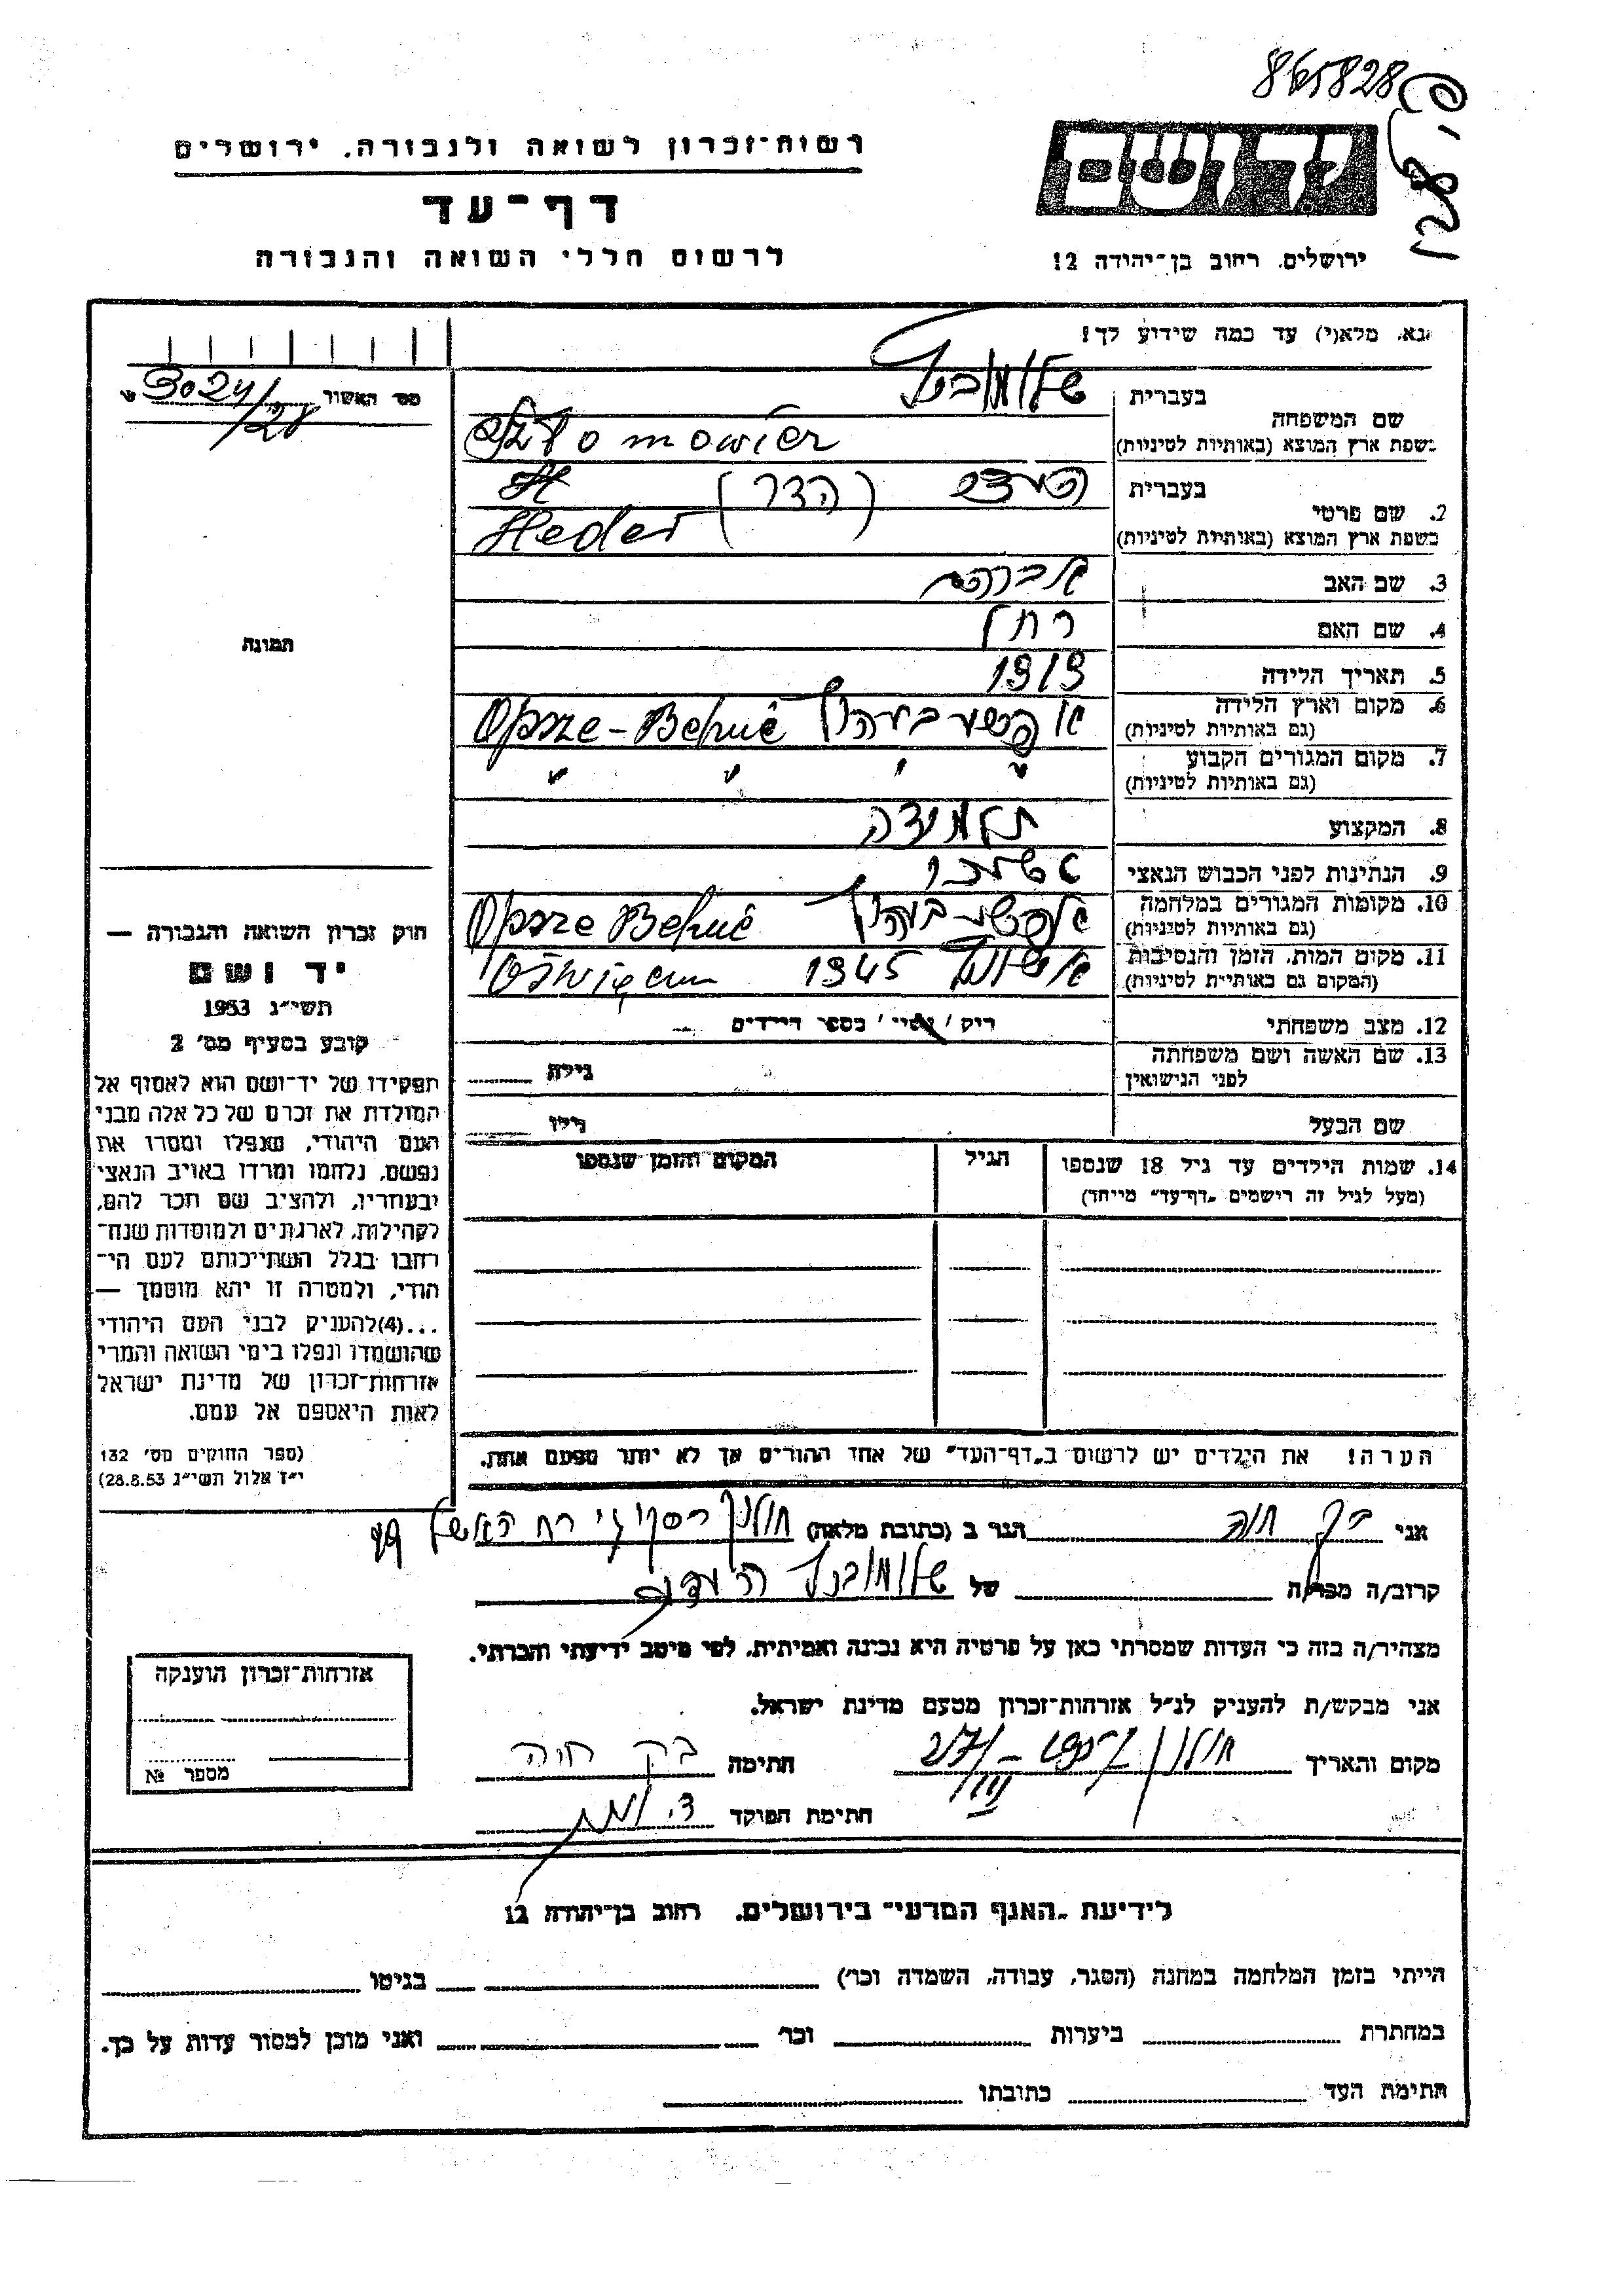 865828
רשות-זכרון לשואה ולגבורה, ירושלים
דף-עד
לרשום חללי השואה והגבורה
ירושלים, רחוב בן-יהודה 12
נא, מלא(י) עד כמה שידוע לך!
מס' האשור 3024/28
שם המשפחה
בעברית
בשפת ארץ המוצא (באותיות לטיניות)
2. שם פרטי
בעברית (הדר)
בשפת ארץ המוצא (באותיות לטיניות) Heder
3. שם האב אברהם
4. שם האם רחל
5. תאריך הלידה 1919
6. מקום וארץ הלידה
(גם באותיות לטיניות)
7. מקום המגורים הקבוע " " " "
(גם באותיות לטיניות)
8. המקצוע תלמידה
9. הנתינות לפני הכבוש הנאצי
10. מקומות המגורים במלחמה
(גם באותיות לטיניות)
11. מקום המות, הזמן והנסיבות 1945
(המקום גם באותיות לטיניות)
12. מצב משפחתי רוק / נשוי / מספר הילדים
13. שם האשה ושם משפחתה
לפני הנישואין גילה
שם הבעל גילו
14. שמות הילדים עד גיל 18 שנספו הגיל המקום והזמן שנספו
(מעל לגיל זה רישמים "דף-עד" מייחד)
הערה! את הילדים יש לרשום ב"דף-העד" של אחד ההורים אך לא יותר מפעם אחת.
תמונה
חוק זכרון השואה והגבורה —
יד ושם
תשי"ג 1953
קובע בסעיף מס' 2
תפקידו של יד-ושם הוא לאסוף אל
המולדת את זכרם של כל אלה מבני
העם היהודי, שנפלו ומסרו את
נפשם, נלחמו ומרדו באויב הנאצי
ובעוזריו, ולהציב שם וזכר להם,
לקהילות, לארגונים ולמוסדות שנח-
רבו בגלל השתייכותם לעם הי-
הודי, ולמטרה זו יהא מוסמך —
...(4) להעניק לבני העם היהודי
שהושמדו ונפלו בימי השואה והמרי
אזרחות-זכרון של מדינת ישראל
לאות היאספם אל עמם.
(ספר החוקים מס' 132
י"ז אלול תשי"ג 28.8.53)
אני בק חוה הגר ב (כתובת מלאה) חולון
קרוב/ה מכר/ה של
מצהיר/ה בזה כי העדות שמסרתי כאן על פרטיה היא נכונה ואמיתית, לפי מיטב ידיעתי והכרתי.
אני מבקש/ת להעניק לנ"ל אזרחות-זכרון מטעם מדינת ישראל.
מקום והתאריך חולון חתימה בק חוה
חתימת הפוקד
אזרחות-זכרון הוענקה
מספר №
לידיעת "האגף המדעי" בירושלים, רחוב בן-יהודה 12
הייתי בזמן המלחמה במחנה (הסגר, עבודה, השמדה וכו') בגיטו
במחתרת ביערות וכו' ואני מוכן למסור עדות על כך.
חתימת העד כתובתו